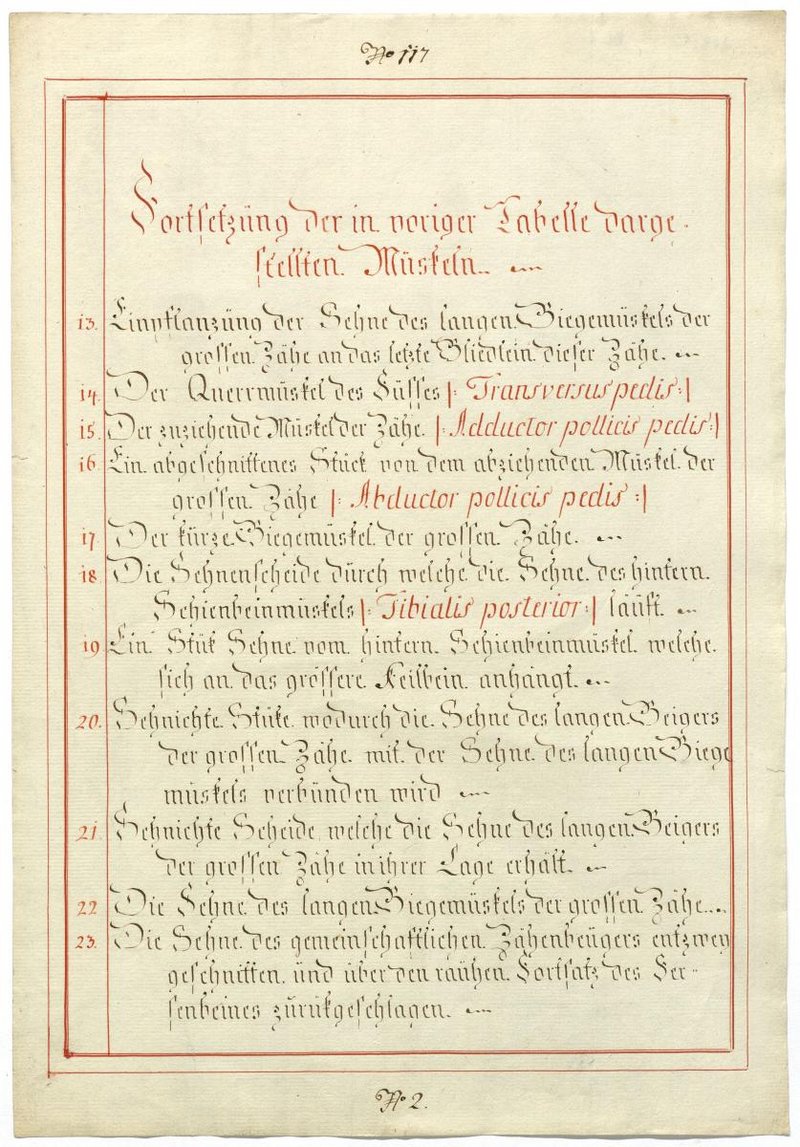 No 117
Fortsetzüng der in voriger Tabelle darge-
stellten Müskeln.
13. Einpflanzüng der Sehne des langen Biegemüskels der
grossen Zähe an das letzte Gliedlein dieser Zähe.
14. Der Querrmüskel des Füsses |: Transversus pedis :|
15. Der zuziehende Müskel der Zähe. |: Adductor pollicis pedis :|
16 Ein abgeschnittenes Stück von dem abziehenden Müskel der
grossen Zähe |: Abductor pollicis pedis :|
17. Der kürze Biegemüskel der grossen Zähe.
18. Die Sehnenscheide dürch welche die Sehne des hintern.
Schienbeinmuskels |: Tibialis posterior :| läuft.
19 Ein Stük Sehne vom hintern Schienbeinmüskel welche
sich an das grössere Keilbein anhängt.
20. Sehnichte Stüke wodurch die Sehne des langen Beigers
der grossen Zähe mit der Sehne des langen Biege
müskels verbünden wird
21. Sehnichte Scheide welche die Sehne des langen Beigers
der grossen Zähe in ihrer Lage erhält.
22 Die Sehne des langen Biegemüskels der grossen Zähe...
23. Die Sehne des gemeinschaftlichen Zähenbeügers entzwey
geschnitten ünd über den raühen Fortsatz des Fer-
senbeines zürükgeschlagen.
No 2.